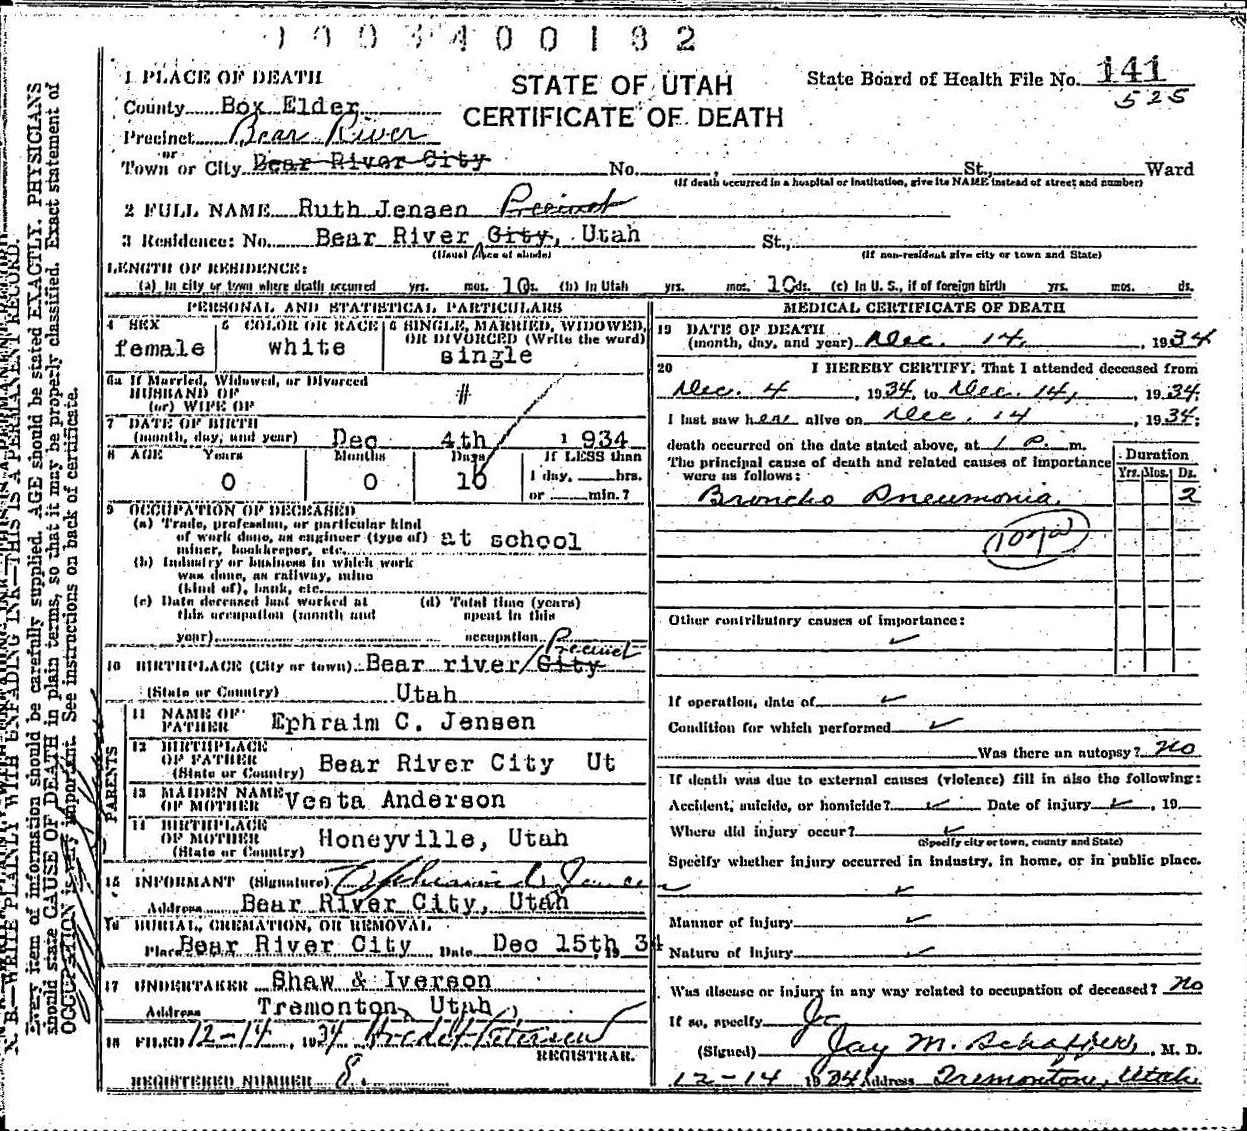 1003400182
1 PLACE OF DEATH
STATE OF UTAH
CERTIFICATE OF DEATH
State Board of Health File No. 141
525
County Box Elder
Precinct Bear River
or
Town or City Bear River City No. , St., Ward
(If death occurred in a hospital or institution, give its NAME instead of street and number)
2 FULL NAME Ruth Jensen Precinct
3 Residence: No. Bear River City, Utah St.,
(Usual place of abode) (If non-resident give city or town and State)
LENGTH OF RESIDENCE:
(a) In city or town where death occurred yrs. mos. 10 ds. (b) In Utah yrs. mos. 10 ds. (c) In U.S., if of foreign birth yrs. mos. ds.
PERSONAL AND STATISTICAL PARTICULARS
4 SEX
female
5 COLOR OR RACE
white
6 SINGLE, MARRIED, WIDOWED,
OR DIVORCED (Write the word)
single
6a If Married, Widowed, or Divorced
HUSBAND OF
(or) WIFE OF #
7 DATE OF BIRTH
(month, day, and year) Dec 4th 1934
8 AGE Years Months Days If LESS than
0 0 10 1 day, hrs.
or min.?
9 OCCUPATION OF DECEASED
(a) Trade, profession, or particular kind
of work done, as engineer (type of) at school
miner, bookkeeper, etc.
(b) Industry or business in which work
was done, as railway, mine
(kind of), bank, etc.
(c) Date deceased last worked at (d) Total time (years)
this occupation (month and spent in this
year) occupation
Precinct
10 BIRTHPLACE (City or town) Bear river City
(State or Country) Utah
PARENTS
11 NAME OF
FATHER Ephraim C. Jensen
12 BIRTHPLACE
OF FATHER Bear River City Ut
(State or Country)
13 MAIDEN NAME
OF MOTHER Vesta Anderson
14 BIRTHPLACE
OF MOTHER Honeyville, Utah
(State or Country)
15 INFORMANT (Signature) Ephraim C. Jensen
Address Bear River City, Utah
16 BURIAL, CREMATION, OR REMOVAL
Place Bear River City Date Dec 15th, 1934
17 UNDERTAKER Shaw & Iverson
Address Tremonton, Utah
18 FILED 12-14, 1934
REGISTRAR.
REGISTERED NUMBER 8.
MEDICAL CERTIFICATE OF DEATH
19 DATE OF DEATH
(month, day, and year) Dec. 14, 1934
20 I HEREBY CERTIFY, That I attended deceased from
Dec. 4, 1934, to Dec. 14, 1934;
I last saw her alive on Dec. 14, 1934;
death occurred on the date stated above, at 1 P. m.
The principal cause of death and related causes of importance
were as follows:
Duration
Yrs. Mos. Ds.
Broncho Pneumonia. 2
Other contributory causes of importance:
If operation, date of
Condition for which performed
Was there an autopsy? no
If death was due to external causes (violence) fill in also the following:
Accident, suicide, or homicide? Date of injury , 19
Where did injury occur?
(Specify city or town, county and State)
Specify whether injury occurred in industry, in home, or in public place.
Manner of injury
Nature of injury
Was disease or injury in any way related to occupation of deceased? no
If so, specify
(Signed) Jay M. Schaffer, M. D.
12-14 1934 Address Tremonton, Utah
N. B.—WRITE PLAINLY WITH UNFADING INK—THIS IS A PERMANENT RECORD.
Every item of information should be carefully supplied. AGE should be stated EXACTLY. PHYSICIANS
should state CAUSE OF DEATH in plain terms, so that it may be properly classified. Exact statement of
OCCUPATION is very important. See instructions on back of certificate.